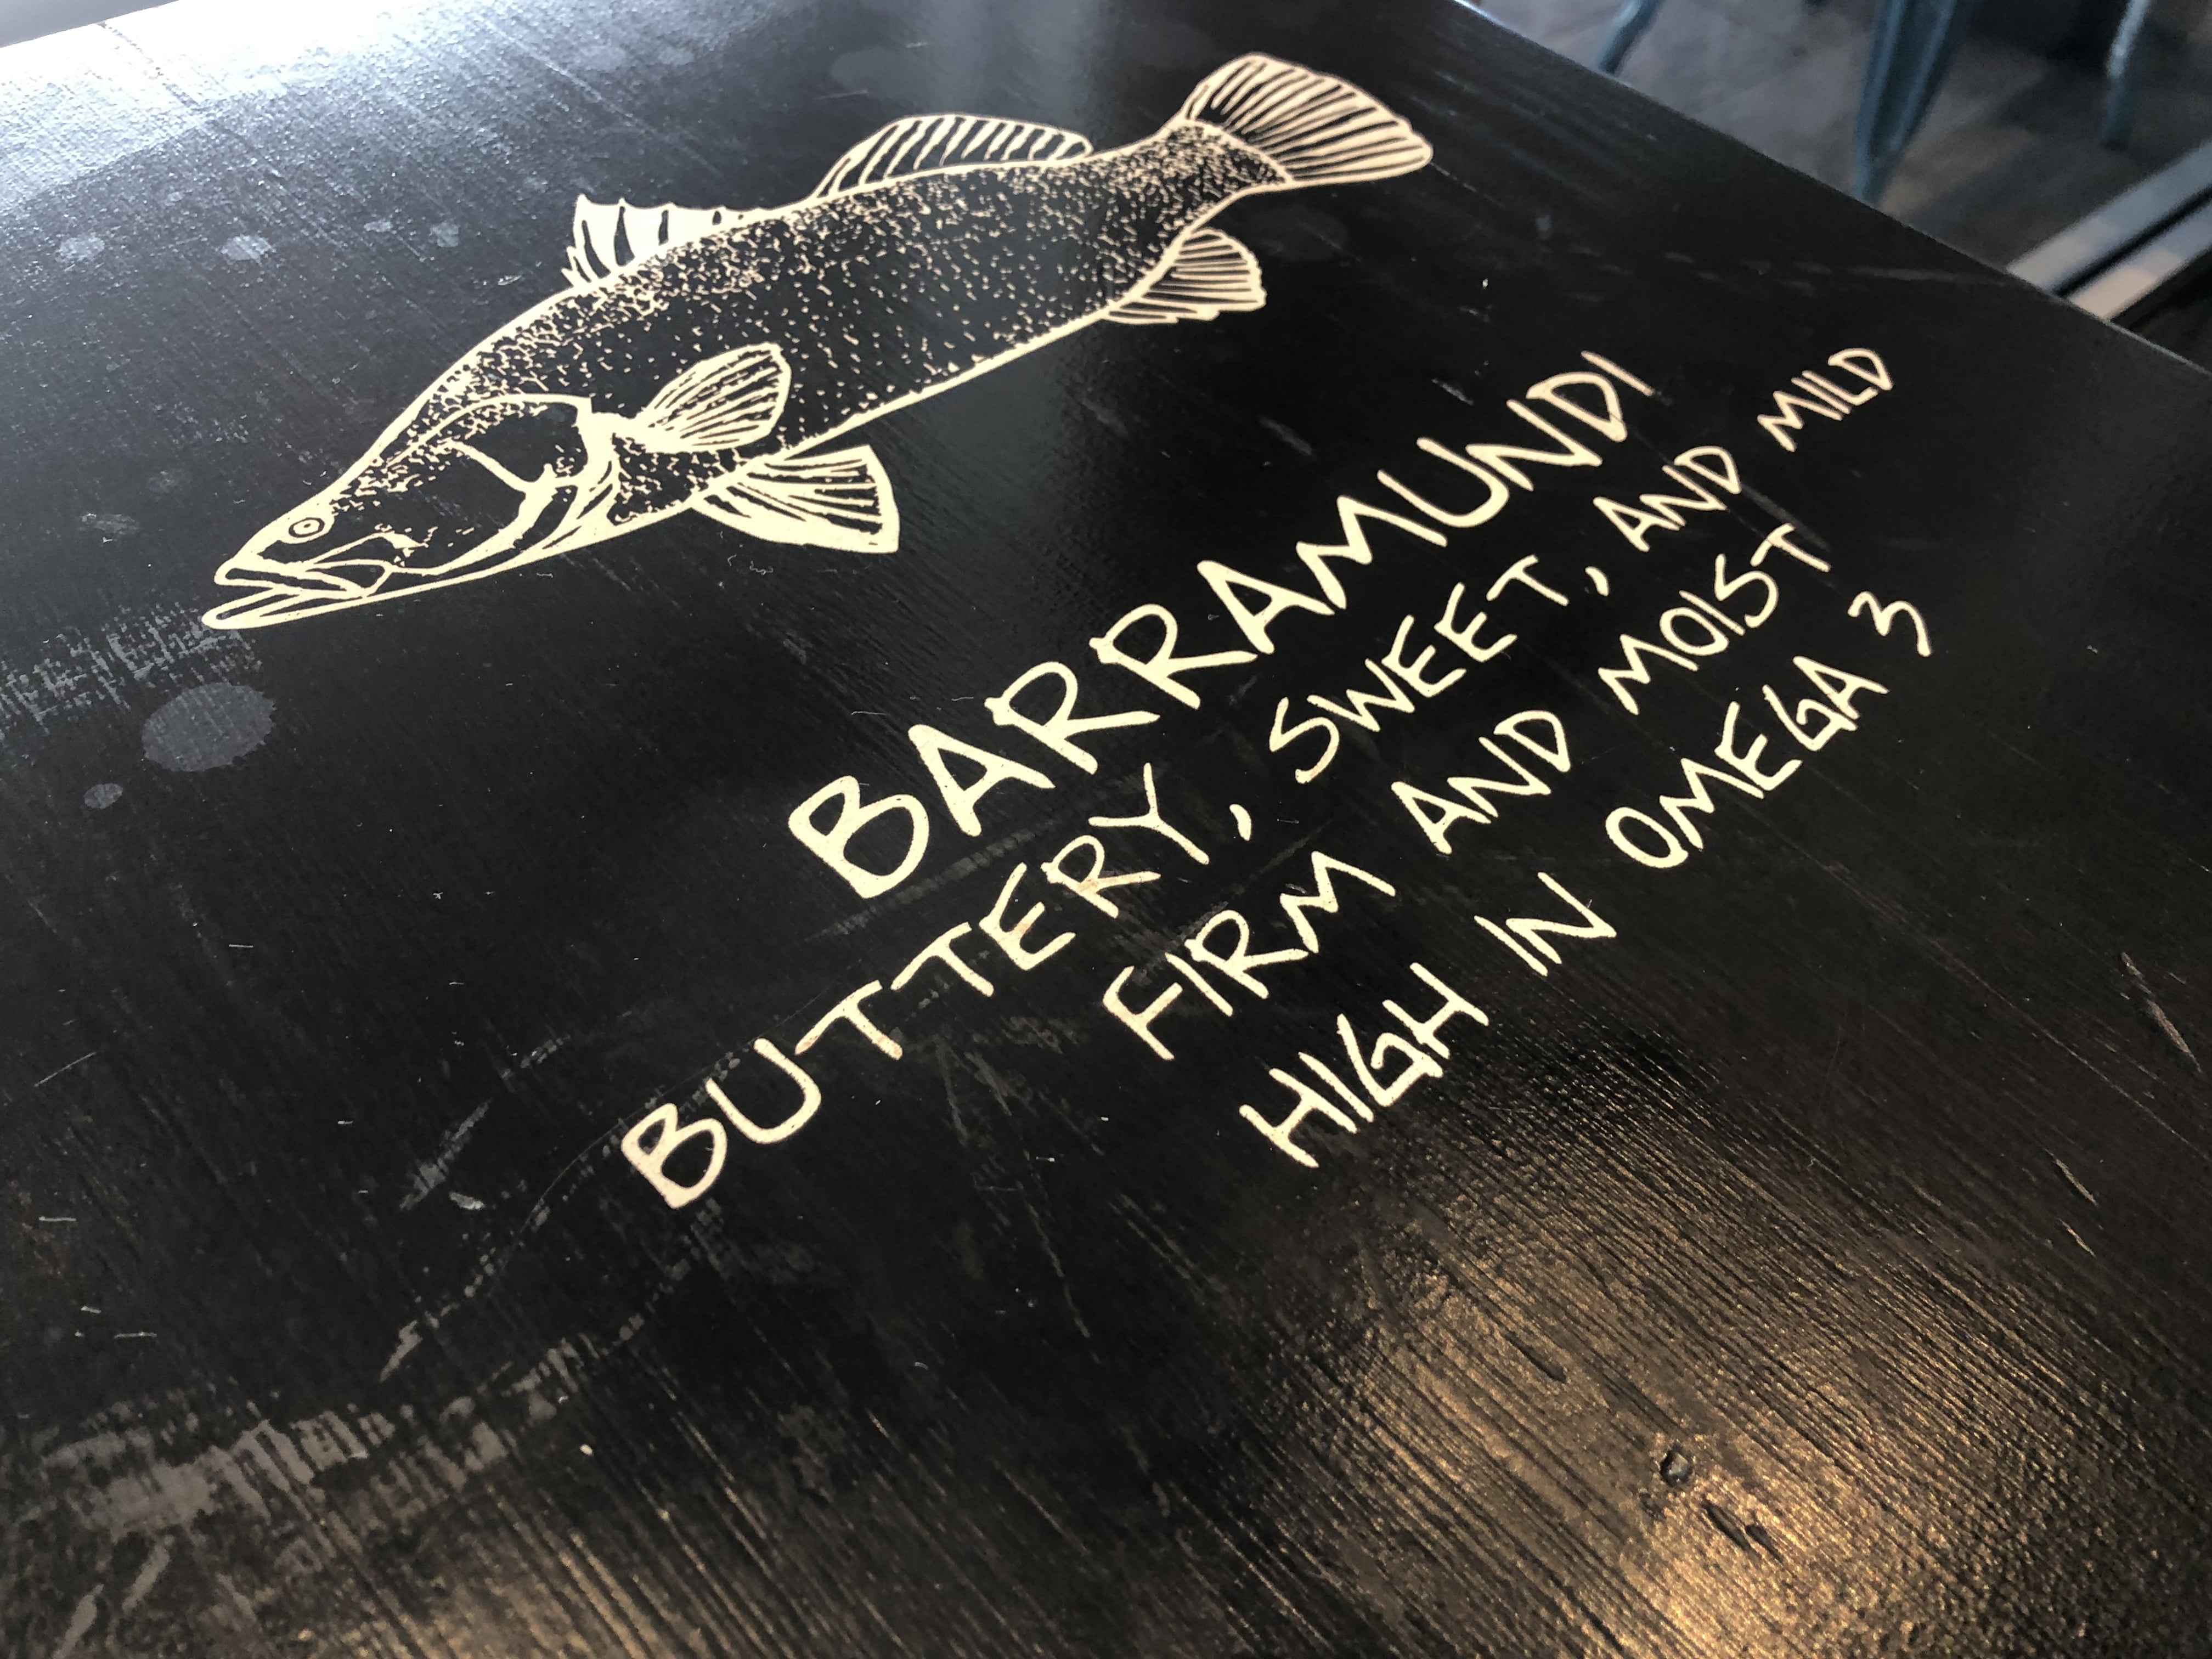 BARRAMUNDI
BUTTERY, SWEET, AND MILD
FIRM AND MOIST
HIGH IN OMEGA 3